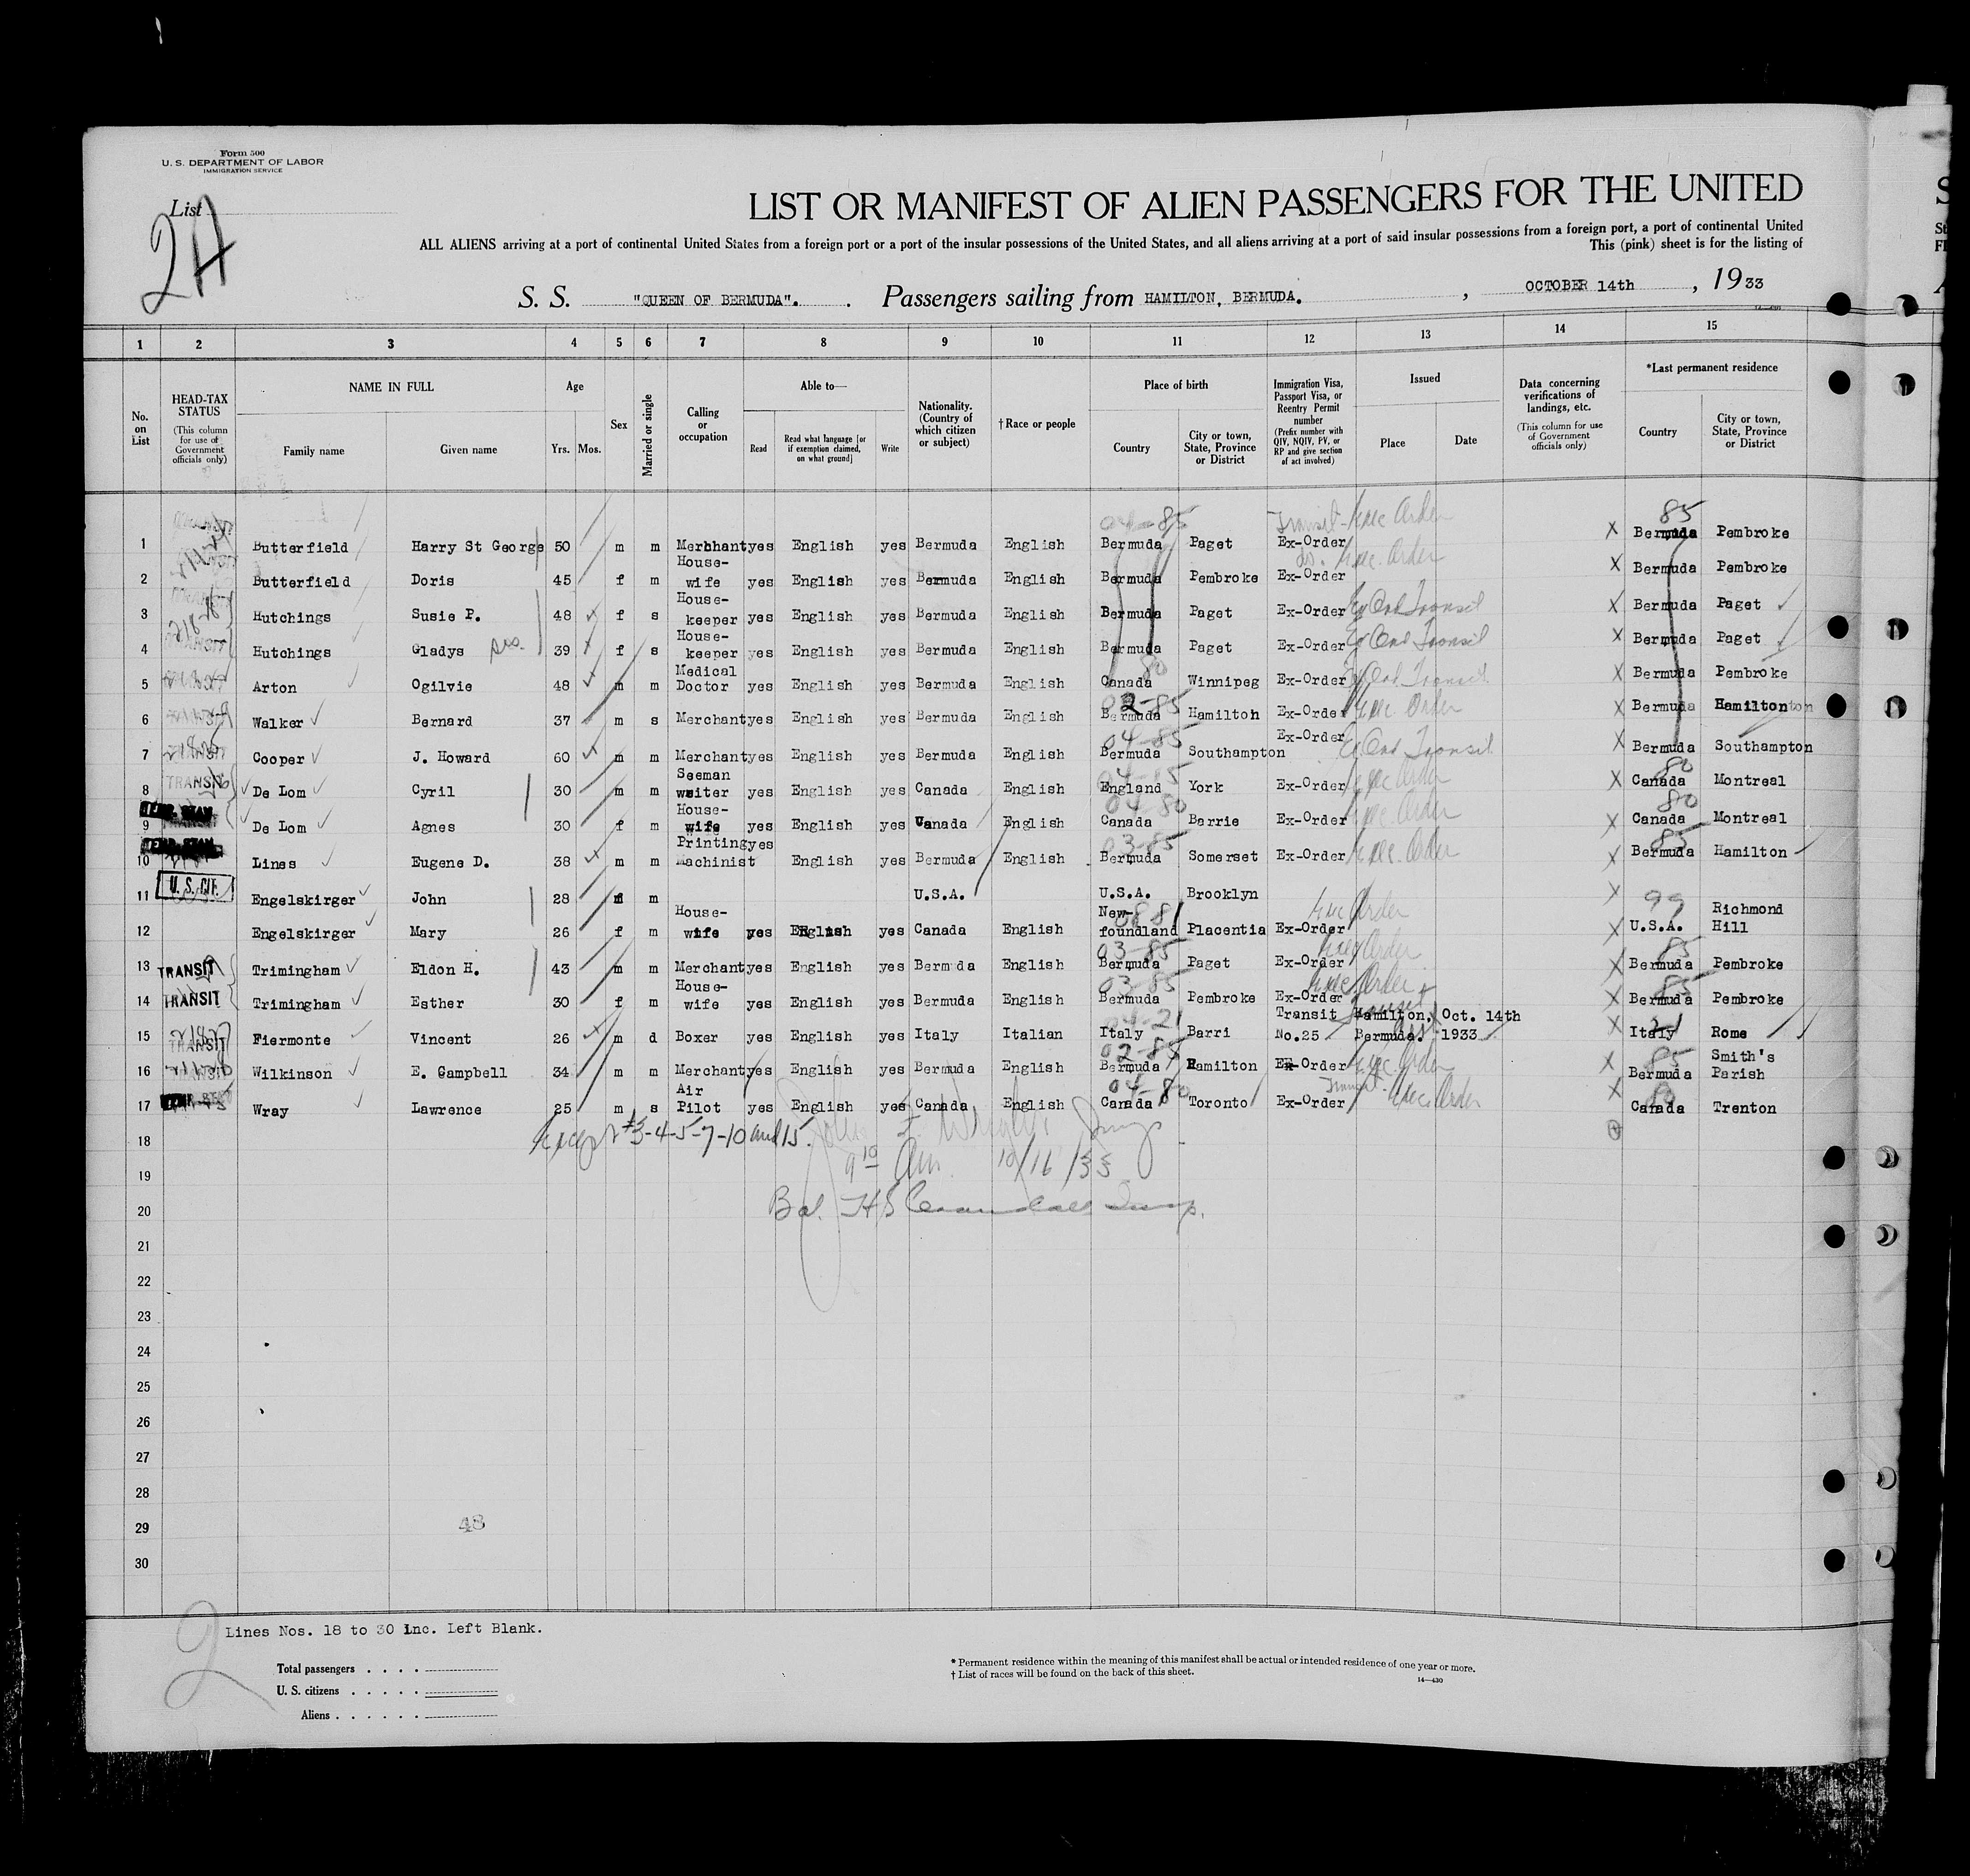 Form 500
U. S. DEPARTMENT OF LABOR
IMMIGRATION SERVICE
List
2A
LIST OR MANIFEST OF ALIEN PASSENGERS FOR THE UNITED
ALL ALIENS arriving at a port of continental United States from a foreign port or a port of the insular possessions of the United States, and all aliens arriving at a port of said insular possessions from a foreign port, a port of continental United
This (pink) sheet is for the listing of
S. S. "QUEEN OF BERMUDA". Passengers sailing from HAMILTON, BERMUDA. , OCTOBER 14th , 1933
1 2 3 4 5 6 7 8 9 10 11 12 13 14 15
No. on List
HEAD-TAX STATUS (This column for use of Government officials only)
NAME IN FULL Family name Given name
Age Yrs. Mos.
Sex
Married or single
Calling or occupation
Able to— Read Read what language [or if exemption claimed, on what ground] Write
Nationality. (Country of which citizen or subject)
†Race or people
Place of birth Country City or town, State, Province or District
Immigration Visa, Passport Visa, or Reentry Permit number (Prefix number with QIV, NQIV, PV, or RP and give section of act involved)
Issued Place Date
Data concerning verifications of landings, etc. (This column for use of Government officials only)
*Last permanent residence Country City or town, State, Province or District
1 Butterfield Harry St George 50 m m Merchant yes English yes Bermuda English Bermuda Paget Ex-Order X Bermuda Pembroke
2 Butterfield Doris 45 f m House-wife yes English yes Bermuda English Bermuda Pembroke Ex-Order X Bermuda Pembroke
3 Hutchings Susie P. 48 f s House-keeper yes English yes Bermuda English Bermuda Paget Ex-Order X Bermuda Paget
4 Hutchings Gladys sis. 39 f s House-keeper yes English yes Bermuda English Bermuda Paget Ex-Order X Bermuda Paget
5 Arton Ogilvie 48 m m Medical Doctor yes English yes Bermuda English Canada Winnipeg Ex-Order X Bermuda Pembroke
6 Walker Bernard 37 m s Merchant yes English yes Bermuda English Bermuda Hamilton Ex-Order X Bermuda Hamilton
7 Cooper J. Howard 60 m m Merchant yes English yes Bermuda English Bermuda Southampton Ex-Order X Bermuda Southampton
8 TRANSIT De Lom Cyril 30 m m Seeman waiter yes English yes Canada English England York Ex-Order X Canada Montreal
9 De Lom Agnes 30 f m House-wife yes English yes Canada English Canada Barrie Ex-Order X Canada Montreal
10 Lines Eugene D. 38 m m Printing Machinist yes English yes Bermuda English Bermuda Somerset Ex-Order X Bermuda Hamilton
11 U.S. CIT. Engelskirger John 28 m m U.S.A. U.S.A. Brooklyn X
12 Engelskirger Mary 26 f m House-wife yes English yes Canada English New-foundland Placentia Ex-Order X U.S.A. Richmond Hill
13 TRANSIT Trimingham Eldon H. 43 m m Merchant yes English yes Bermuda English Bermuda Paget Ex-Order X Bermuda Pembroke
14 TRANSIT Trimingham Esther 30 f m House-wife yes English yes Bermuda English Bermuda Pembroke Ex-Order X Bermuda Pembroke
15 TRANSIT Fiermonte Vincent 26 m d Boxer yes English yes Italy Italian Italy Barri Transit No.25 Hamilton, Bermuda. Oct. 14th 1933 X Italy Rome
16 Wilkinson E. Campbell 34 m m Merchant yes English yes Bermuda English Bermuda Hamilton Ex-Order X Bermuda Smith's Parish
17 Wray Lawrence 25 m s Air Pilot yes English yes Canada English Canada Toronto Ex-Order X Canada Trenton
18 Except #3-4-5-7-10 and 15.
19 9 10 am. 10/16/33
20 Bal. H S Crandall Insp.
21
22
23
24
25
26
27
28
29 48
30
2
Lines Nos. 18 to 30 Inc. Left Blank.
Total passengers
U. S. citizens
Aliens
* Permanent residence within the meaning of this manifest shall be actual or intended residence of one year or more.
† List of races will be found on the back of this sheet.
14—430